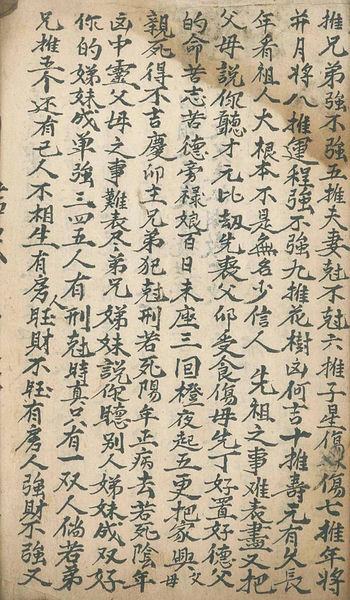 推兄弟強不強五推夫妻尅不尅六推子星傷不傷七推年將
并月將八推運程強不強九推花樹凶何吉十推壽元有久長
年看祖人大根本不是無名少信人 先祖之事难表盡又把
父母說你聽才元比刼先喪父卯受食傷母先丁好置好德父
的命苦志苦德旁祿娘百日未座三回橙夜起五更把家興父母
親死得不吉慶卯主兄弟犯尅刑若死陽年正病去若死陰年
凶中靈父母之事難表尽弟兄娣妹說你聽別人娣妹成双好
你的娣妹成单強三四五人有刑尅時真只有一双人倘若弟
兄推五个还有己人不相生有房人旺財不旺有房人強財不強又